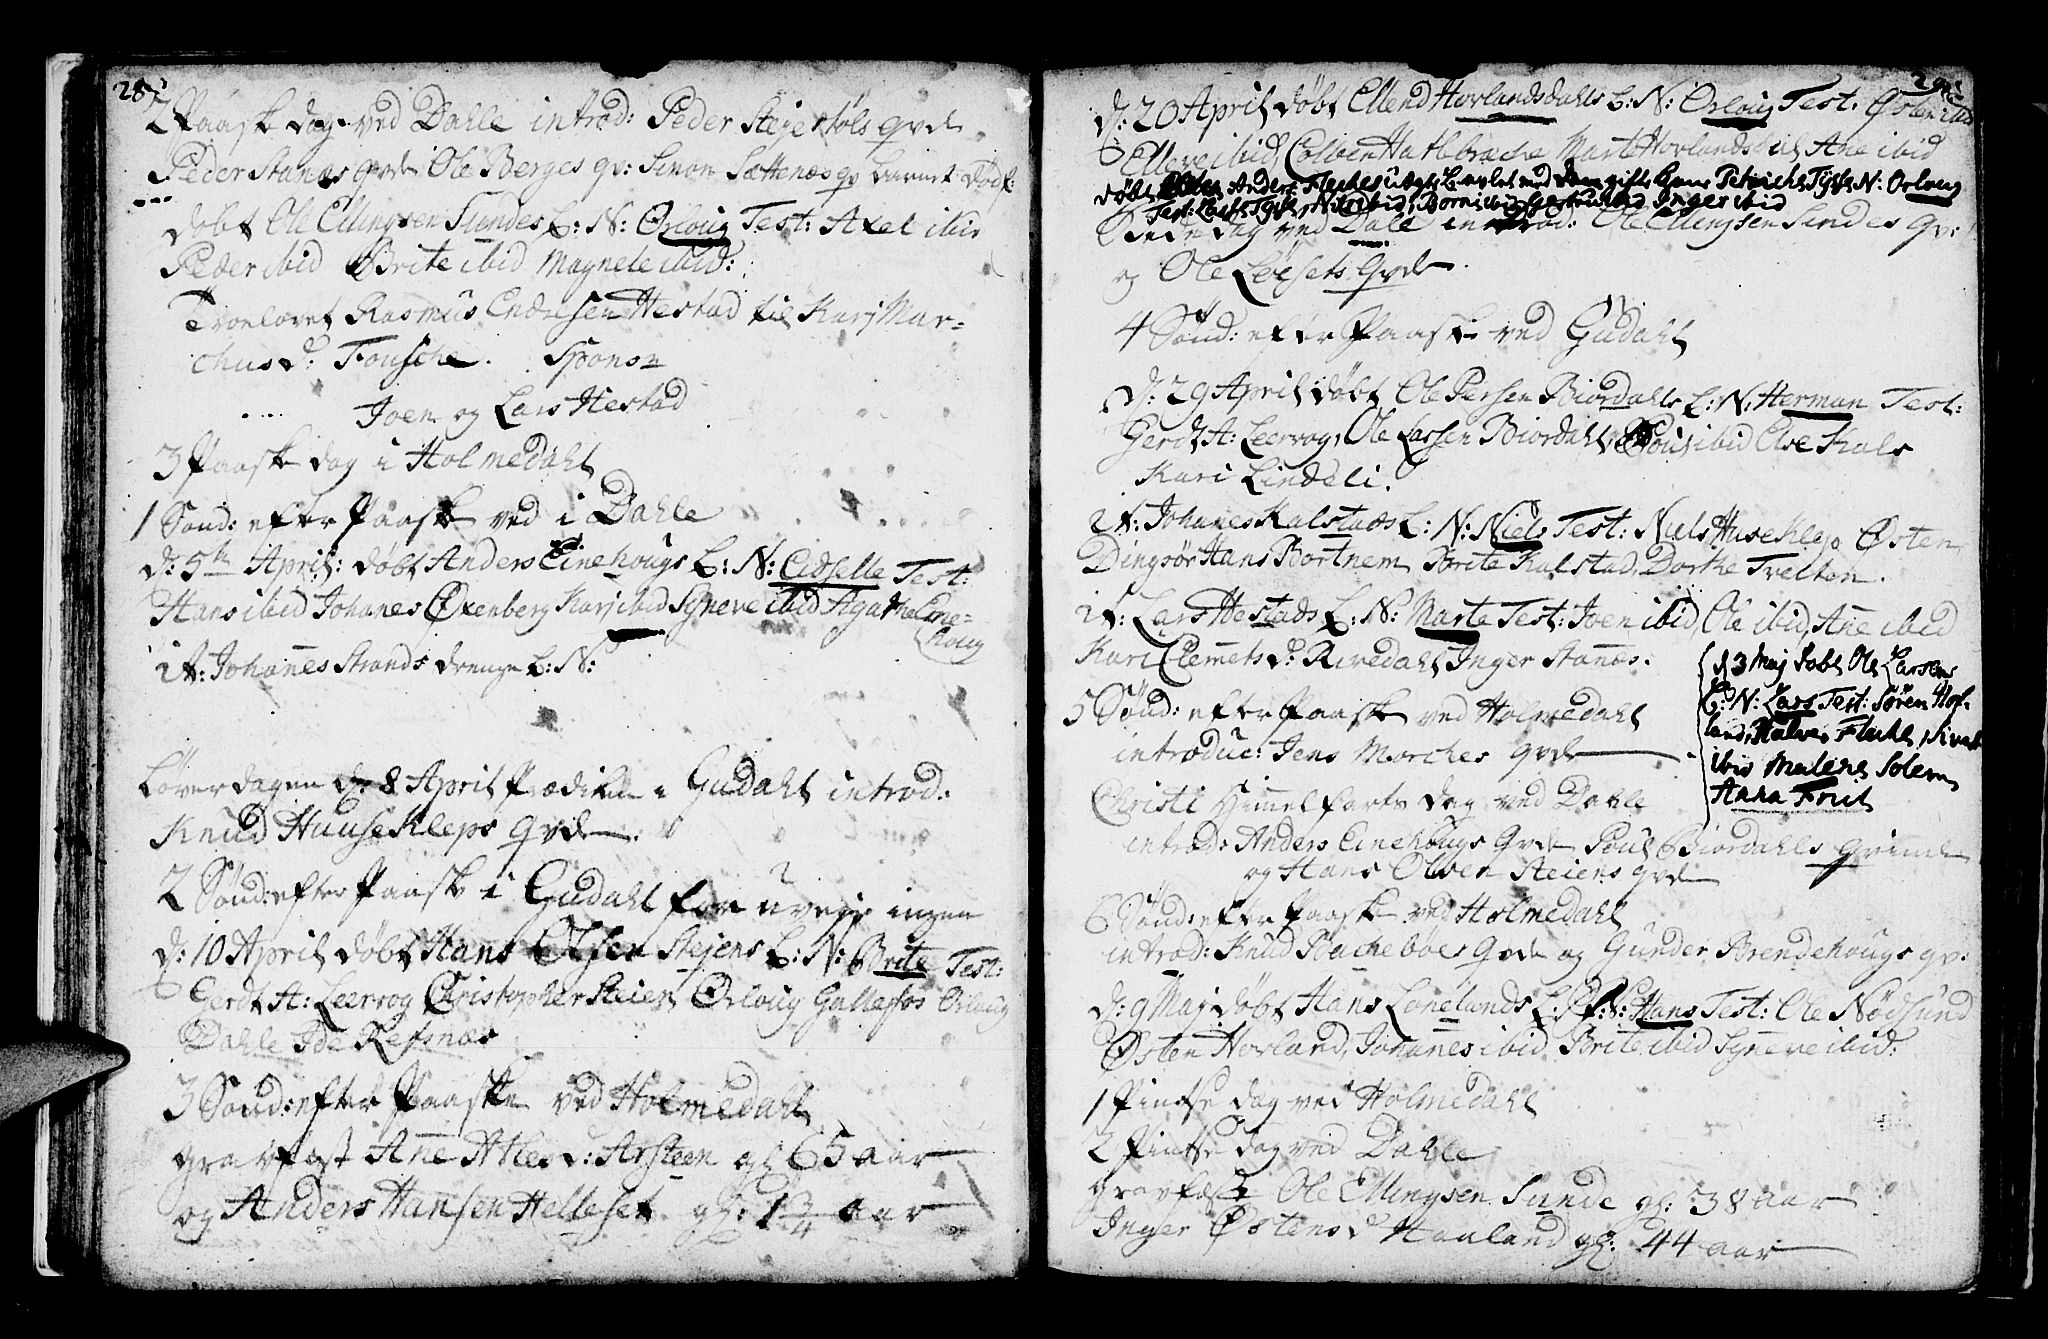 28.
2 Paaske dag ved Dahle introd: Peder Stejestøls qvde
Peder Stanæs qvde Ole Berges qv: Simon Sættenæs qv barnet dødf:
døbt Ole Ellingsen Sundes B: N: Orloug Test: Axel ibid
Peder ibid Brite ibid Magnele ibid:
Troelovet Rasmus Endresen Hestad til Karj Mar-
chus d: Fousche. Spons
Joen og Lars Hestad
3 Paaske dag i Holmedahl
1 Sønd: efter Paaske ved i Dahle
d: 5te April: døbt Anders Einehougs B: N: Eidselle Test:
Hans ibid Johanes Oxenberg Karj ibid Syneve ibid Agathe Eine-
houg
it: Johannes Strands drenge B: N:
Løverdagen d: 8 April Prædiken i Gudahl introd:
Knud Huusekleps qvde.
2 Sønd: efter Paaske i Gudahl for uvejr ingen
d: 10 April døbt Hans Olsen Stejens B: N: Brite Test:
Gerdt A: Leervog Christopher Steien Orloug Gallefos Orloug
Dahle Ide Refsnæs
3 Sønd: efter Paaske ved Holmedahl
gravfæst Ane Atles d: Arsteen gl: 65 aar
og Anders Hansen Helleset gl: 1 3/4 aar
29.
d: 20 April døbt Ellend Hovlandsdahls B: N: Orloug Test: Østen ibid
Elleve ibid, Colben Hatlebræche Marte Hovlandsdal Ane ibid
døbt Anders Fleches B: N: Orloug
Test: ibid, Inger ibid
Bededag ved Dale introd: Ole Ellingsen Sundes qv:
og Ole Løesets qvde.
4 Sønd: efter Paaske ved Gudahl
d: 29 April døbt Ole Persen Biordahls B: N: Herman Test:
Gerdt A: Leervog, Ole Larsen Biordahl, Poul ibid Else Kals
Kari Lindeli.
it: Johanes Kalstads B: N: Niels Test: Niels Huseklep Østen
Dingsør Hans Bortnem Brite Kalstad, Dorthe Tveiten.
it: Lars Hestads B: N: Marte Test: Joen ibid, Ole ibid, Ane ibid
Kari Clemets d: Rivedahl Inger Stanæs.
d 3 Maj døbt Ole Larsens
B: N: Lars Test: Søren Hof-
land, Halvor Flekke,
ibid Malene Solem
Anna
5 Sønd: efter Paaske ved Holmedahl
introduc: Jens Morches qvde
Christi Himmelfarts dag ved Dahle
introd: Anders Einehougs qvde Poul Biordahls qvinde
og Hans Olsen Steiens qvde
6 Sønd: efter Paaske ved Holmedahl
introd: Knud Bachebøes qvde og Gunder Brendehougs qv:
d: 9 Maj døbt Hans Lonelands B: N: Hans Test: Ole Nødsund
Østen Hovland, Johannes ibid Brite ibid Syneve ibid:
1 Pintse dag ved Holmedahl
2 Pintse dag ved Dahle
gravfæst Ole Ellingsen Sunde gl: 38 aar
Inger Østens d Haaland gl: 44 aar